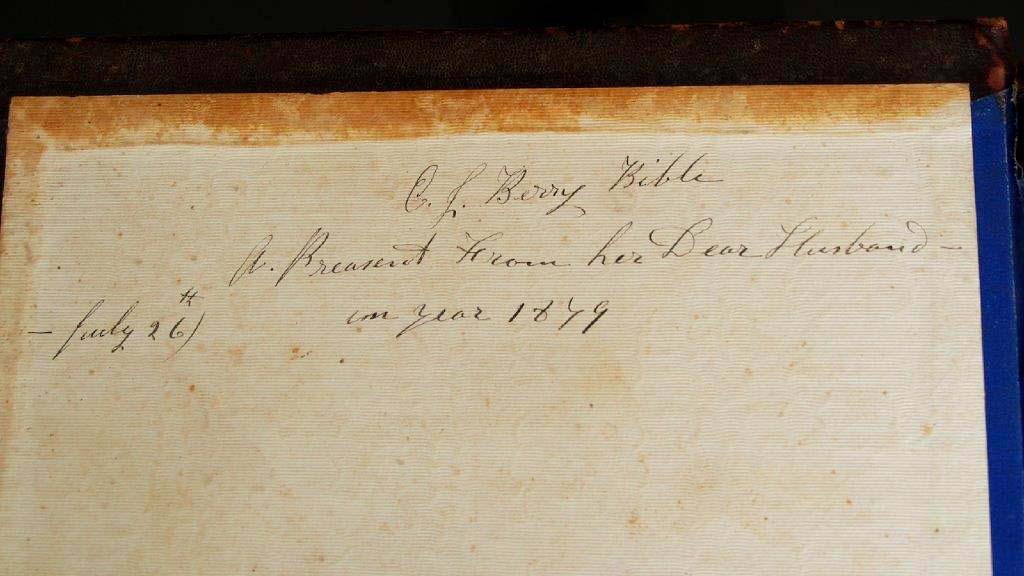 C. J. Berry Bible
A. Preasent From her Dear Husband -
in year 1879
- July 26th)